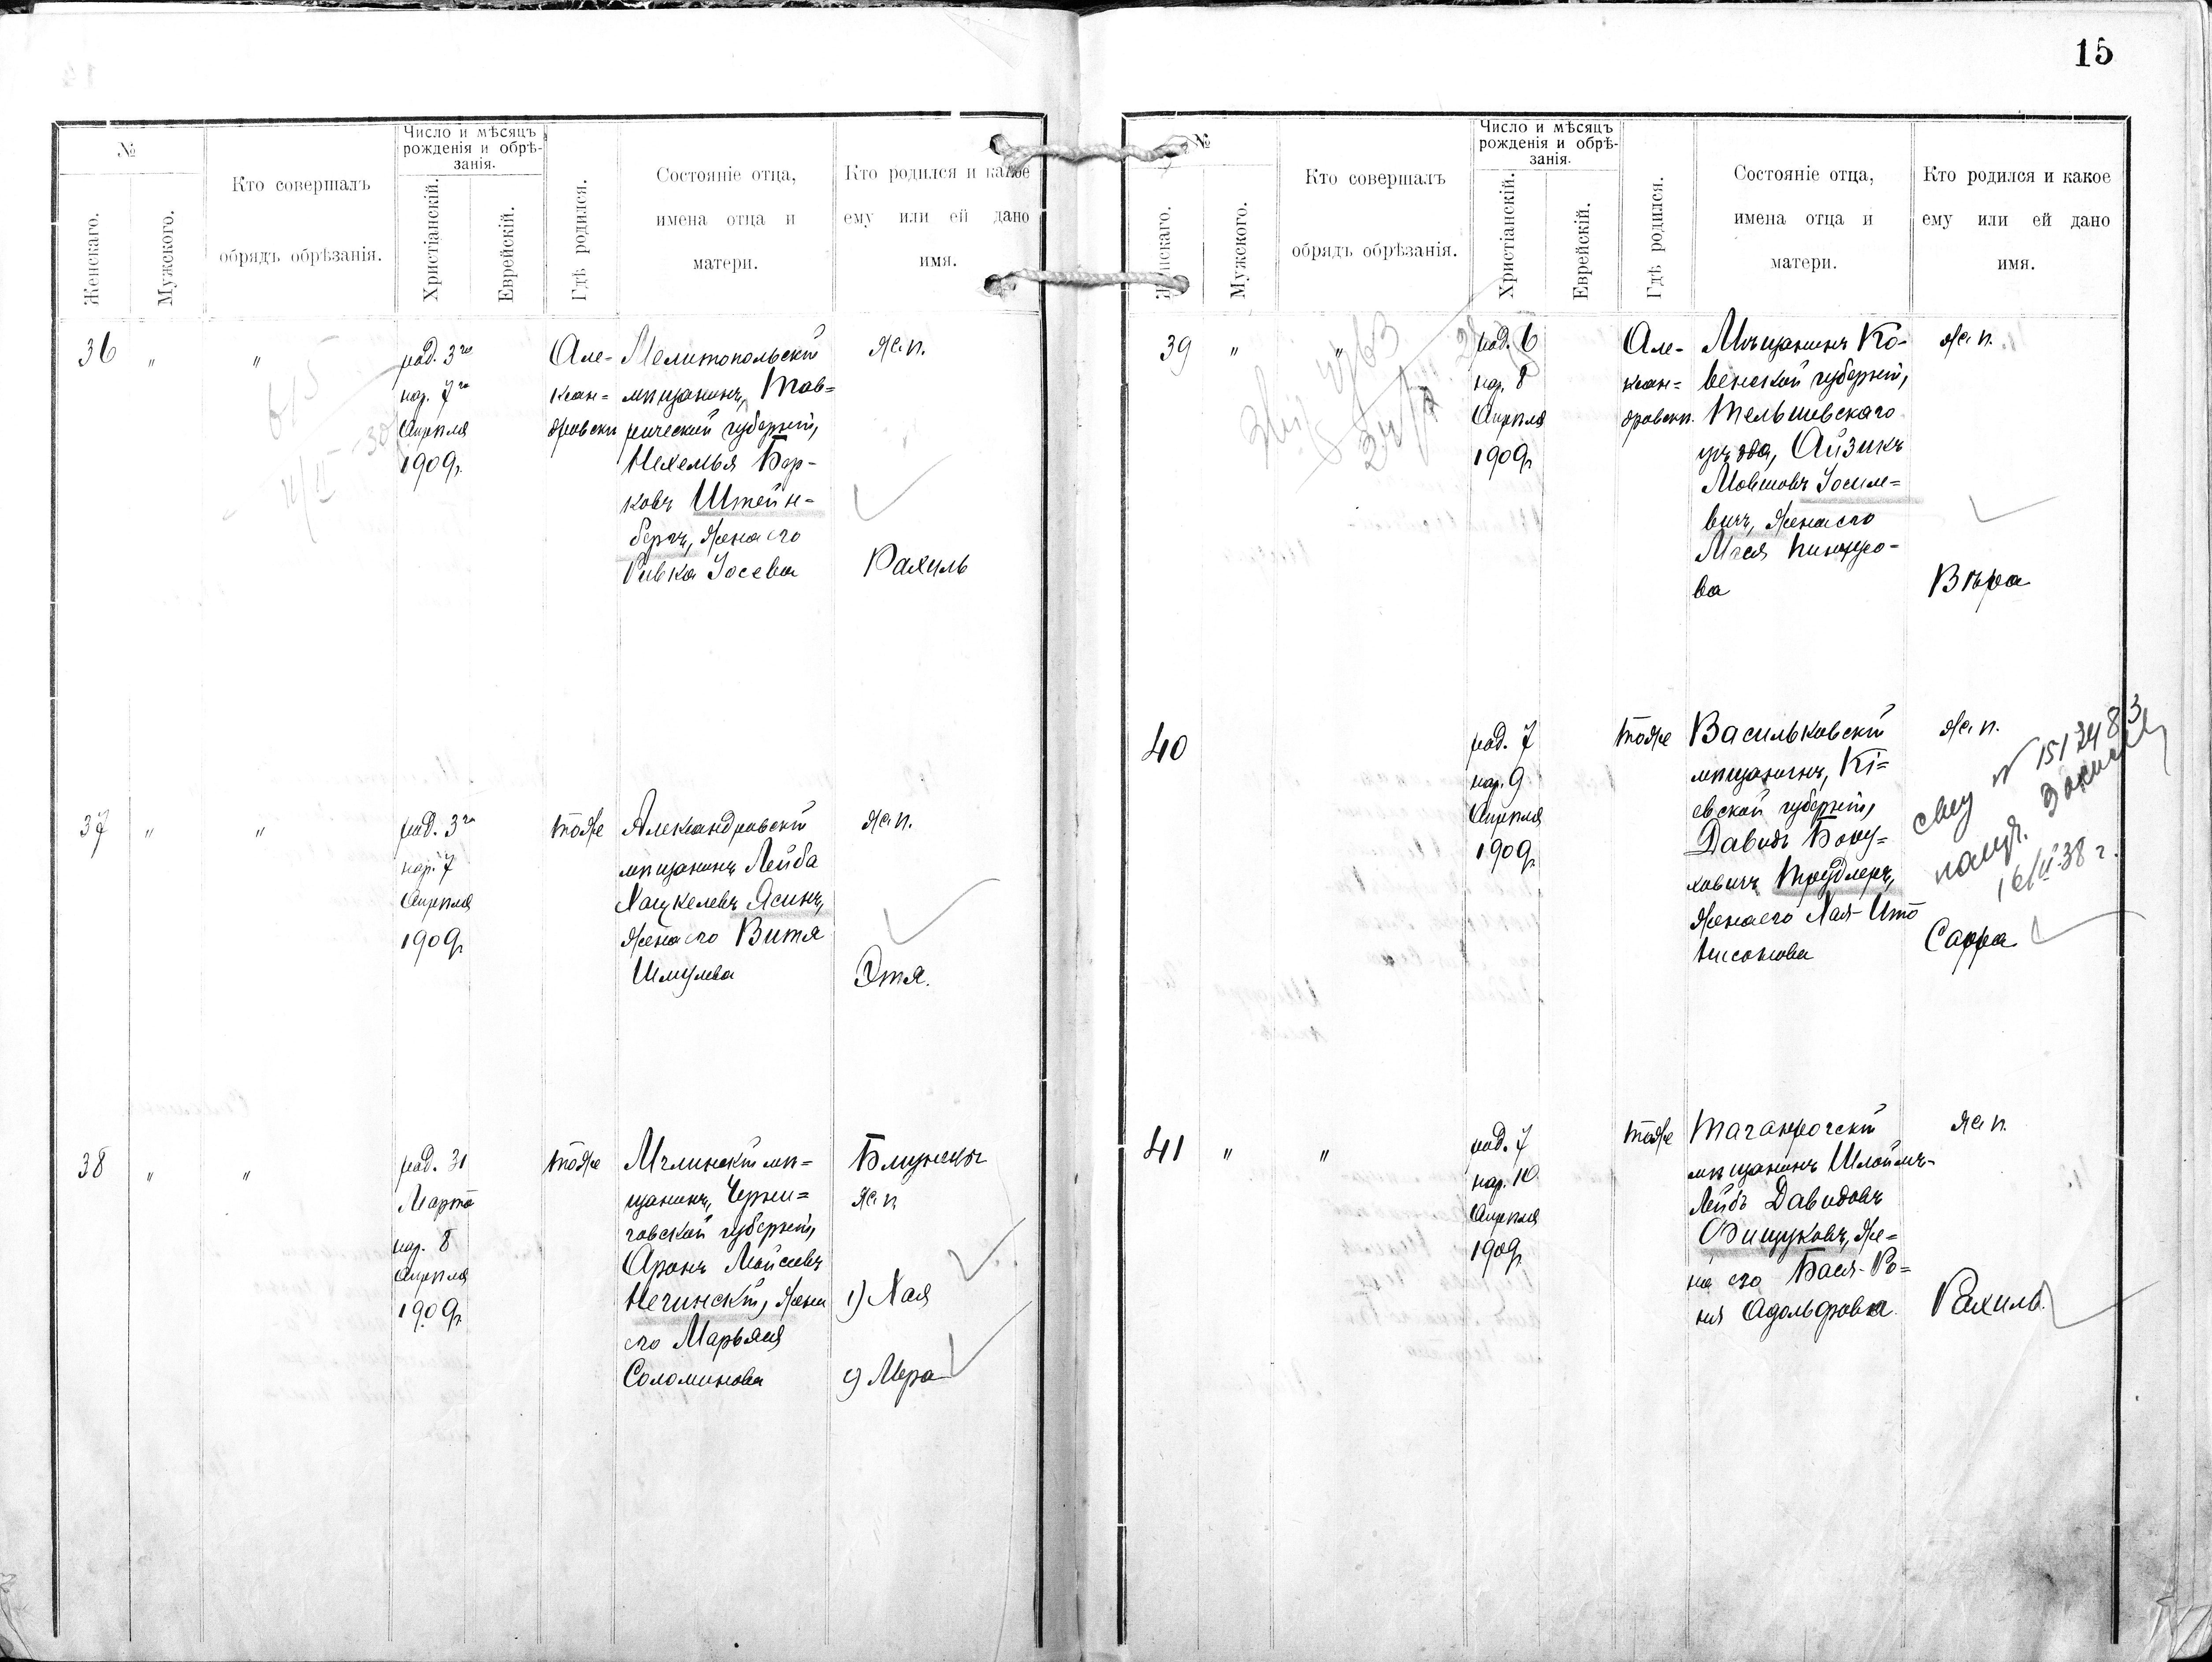 15
№
Женскаго.
Мужского.
Кто совершалъ
обрядъ обрѣзанія.
Число и мѣсяцъ
рожденія и обрѣ-
занія.
Христіанскій.
Еврейскій.
Гдѣ родился.
Состояніе отца,
имена отца и
матери.
Кто родился и какое
ему или ей дано
имя.
36 " "
род. 3го
нар. 7го
Апрѣля
1909г.
Але-
ксан=
дровскѣ
Мелитопольскій
мѣщанинъ, Тав=
рической губерніи,
Нехемья Бер-
ковъ Штейн=
бергъ, жена его
Ривка Іосева
ж.п.
Рахиль
37 " "
род. 3го
нар. 7
Апрѣля
1909г.
тоже
Александровскій
мѣщанинъ Лейба
Хацкелевъ Ясинъ,
жена его Витя
Шмулева
ж.п.
Этя.
38 " "
род. 31
Марта
нар. 8
Апрѣля
1909г.
тоже
Мглинскій мѣ=
щанинъ, Черни=
говской губерніи,
Аронъ Мойсеевъ
Нечинскій, жена
его Марьяся
Соломинова
Близнецы
ж.п.
1) Хая
2) Мера
№
Женскаго.
Мужского.
Кто совершалъ
обрядъ обрѣзанія.
Число и мѣсяцъ
рожденія и обрѣ-
занія.
Христіанскій.
Еврейскій.
Гдѣ родился.
Состояніе отца,
имена отца и
матери.
Кто родился и какое
ему или ей дано
имя.
39 " "
род. 6
нар. 8
Апрѣля
1909г.
Але-
ксан=
дровскѣ
Мѣщанинъ Ко-
венской губерніи,
Тельшевскаго
уѣзда, Айзикъ
Мовшовъ Іосиле=
вичъ, жена его
ва
ж.п.
Вѣра
40
род. 7
нар. 9
Апрѣля
1909г.
тоже
Васильковскій
мѣщанинъ, Кі=
евской губерніи,
Давидъ Боку=
ховичъ Трудлеръ,
жена его Хая-Ита
ж.п.
№ 151248
16/II 38 г.
Сарра
41 " "
род. 7
нар. 10
Апрѣля
1909г.
тоже
Таганрогскій
мѣщанинъ Шлоймъ-
Лейбъ Давидовъ
Фищуковъ, же=
на его Бася-Ро=
ня Адольфовна
ж.п.
Рахиль.